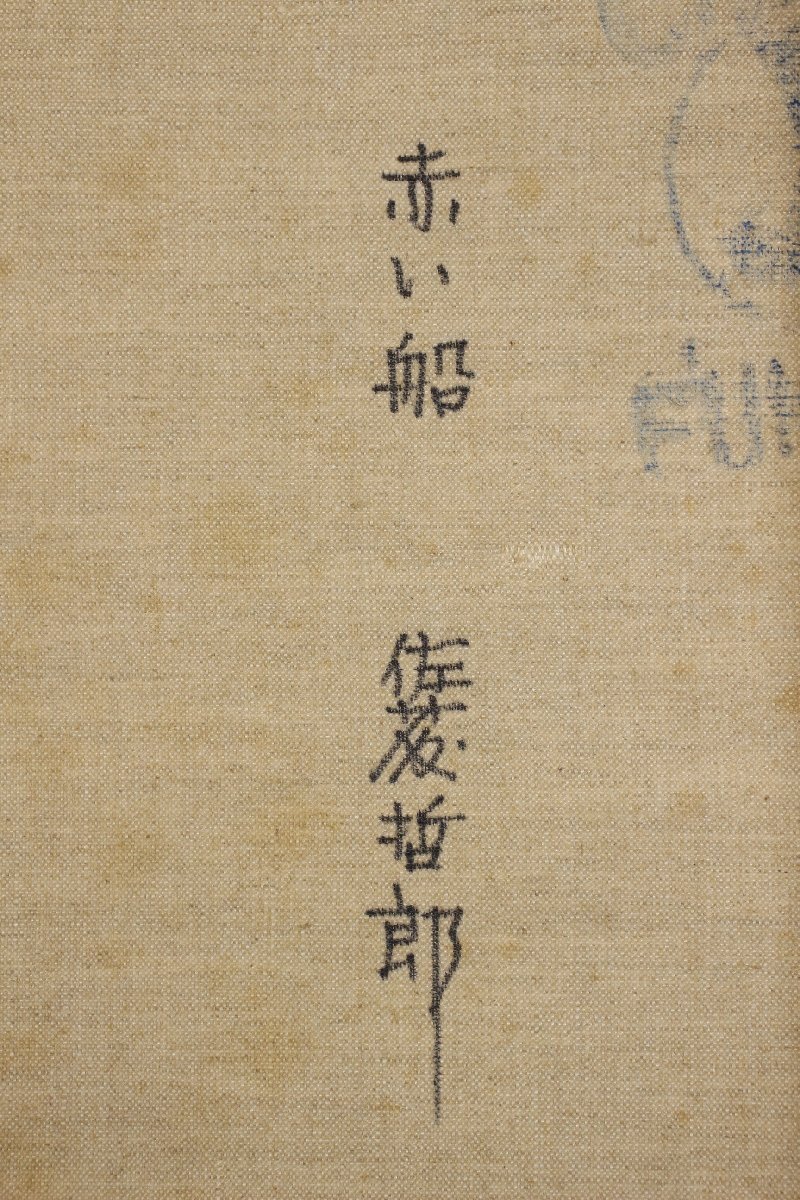 赤い船
佐藤哲郎
FUN